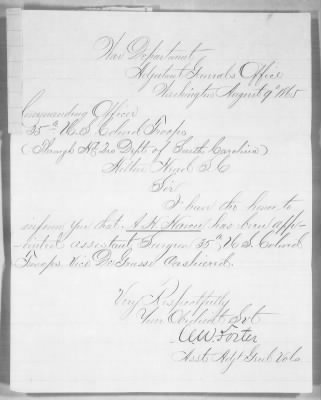 War Department
Adjutant General's Office
Washington August 9th 1865
Commanding Officer
35th U.S. Colored Troops
(Through Hd. Qrs Dept. of South Carolina)
Hilton Head S.C.
Sir
I have the honor to
inform you that J. H. has been app-
ointed assistant Surgeon 35th U.S. Colored
Troops Vice De Grasse Cashiered.
Very Respectfully
Your Obedient Svt
C W. Foster
Asst Adjt Genl Vols